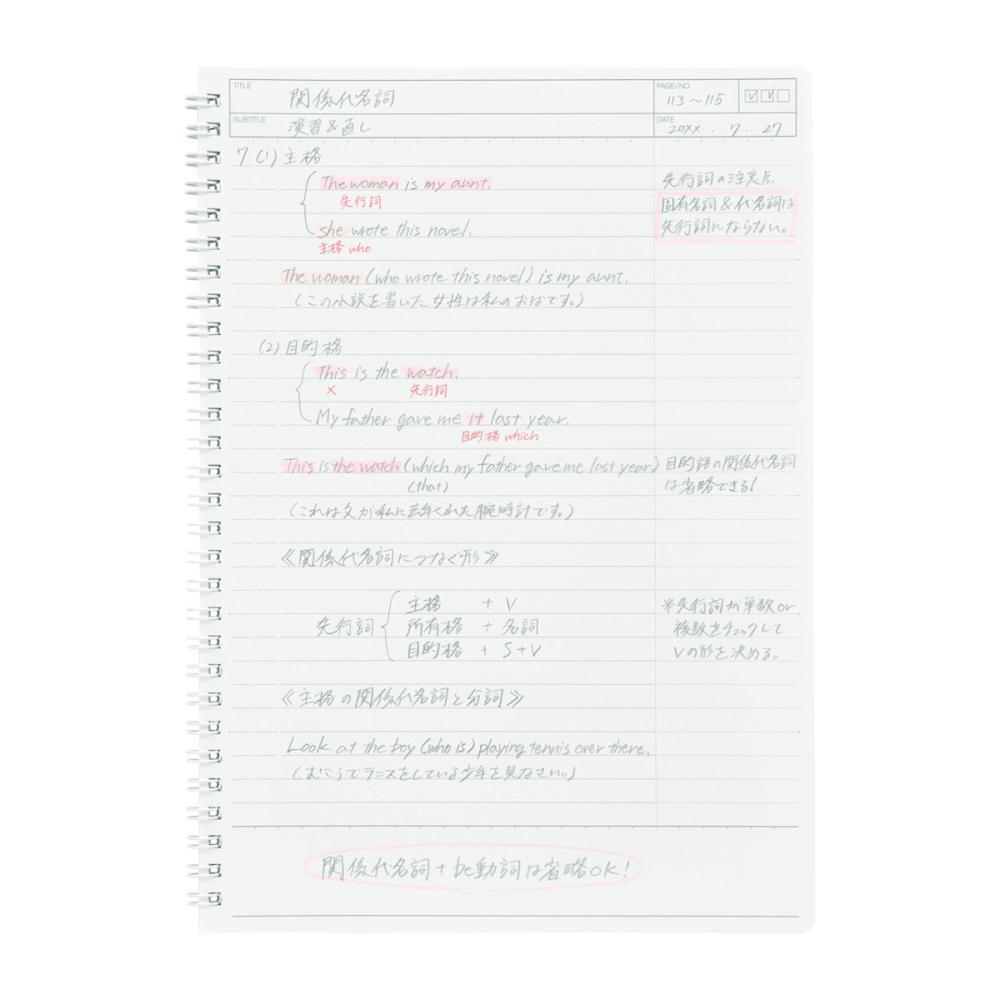 TITLE
関係代名詞
PAGE/NO.
113〜115
SUBTITLE
演習&直し
DATE
20XX . 7 . 27
7 (1) 主格
The woman is my aunt.
先行詞
she wrote this novel.
主格 who
The woman (who wrote this novel) is my aunt.
(この小説を書いた女性は私のおばです。)
先行詞の注意点
固有名詞&代名詞は
先行詞にならない。
(2) 目的格
This is the watch.
× 先行詞
My father gave me it last year.
目的格 which
This is the watch (which my father gave me last year)
(that)
(これは父が私に去年くれた腕時計です。)
目的語の関係代名詞
は省略できる!
《関係代名詞につなぐ形》
先行詞
主格 + V
所有格 + 名詞
目的格 + S+V
※先行詞が単数or
複数をチェックして
Vの形を決める。
《主格の関係代名詞と分詞》
Look at the boy (who is) playing tennis over there.
(むこうでテニスをしている少年を見なさい。)
関係代名詞+be動詞は省略OK!